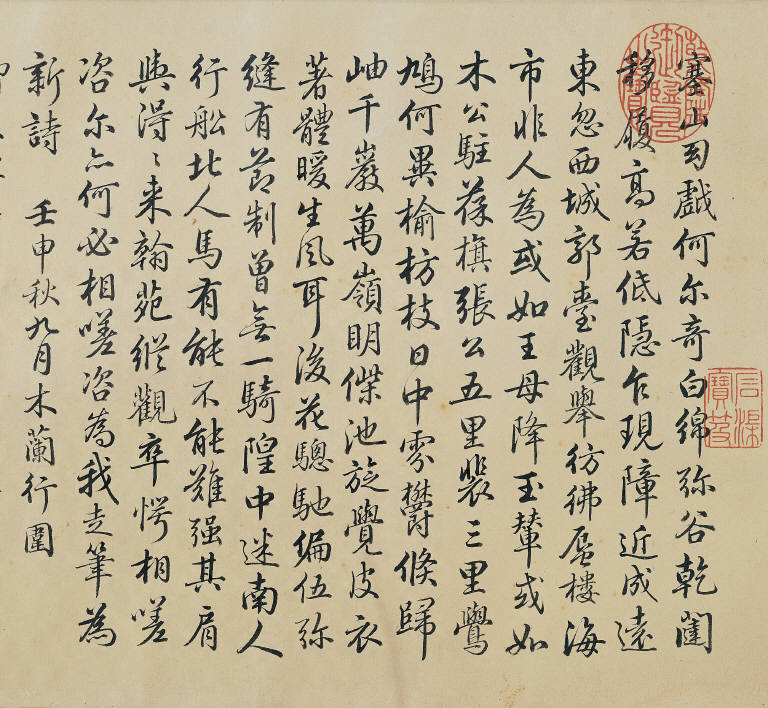 塞山幻戲何尔奇白綿弥谷乾闥
移履高若低隱乍現障近成遠
東忽西城郭臺觀舉彷彿蜃樓海
市非人為或如王母降玉輦或如
木公駐葆旗張公五里裴三里鷽
鳩何異榆枋枝日中雰鬱倏歸
岫千巖萬嶺明傑池旋覺皮衣
著體暖生風耳後花驄馳編伍弥
縫有節制曾無一騎隍中迷南人
行船北人馬有能不能難强其肩
與淂〻来翰苑縱觀卒愕相嗟
咨尔亦何必相嗟咨為我走筆為
新詩 壬申秋九月木蘭行圍
石渠寶笈